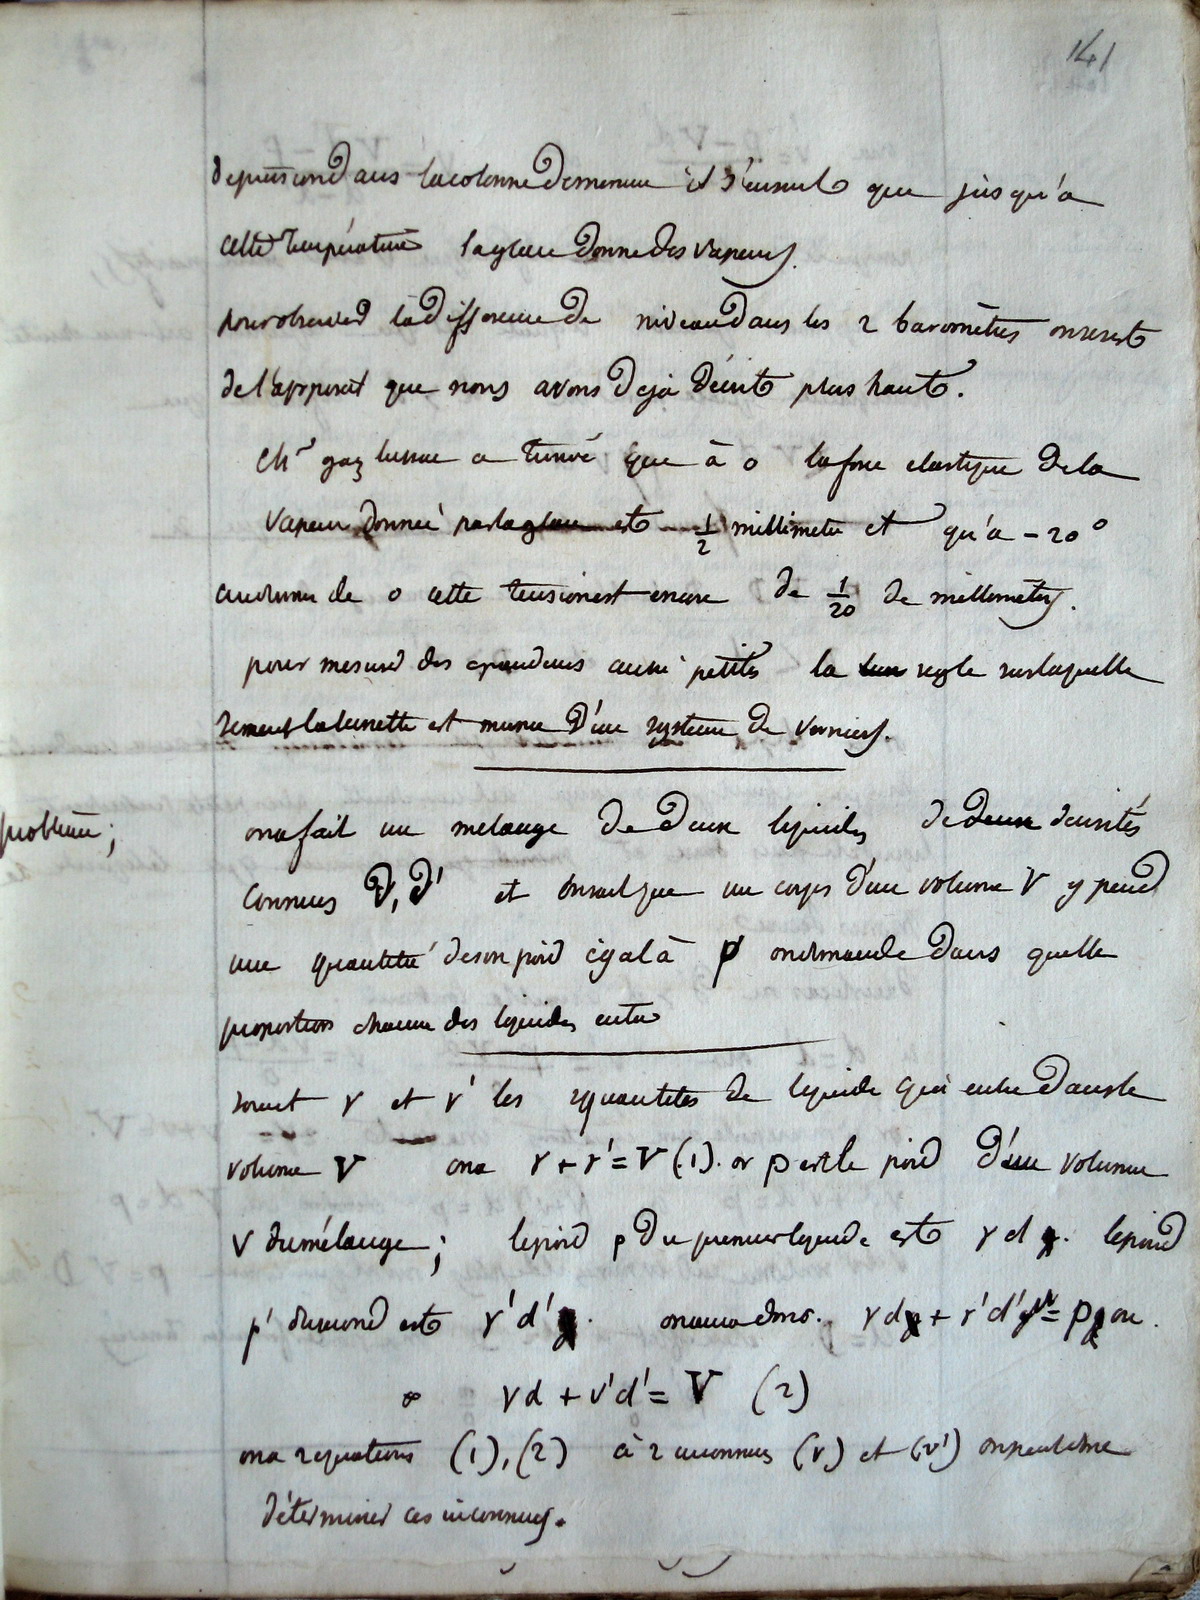 141
depression dans la colonne de mercure et s'ensuit que jusqu'a
cette température la glace donne des vapeurs.
pour observer la difference de niveau dans les 2 baromètres on se sert
de l'appareil que nous avons deja décrit plus haut.
Mr gaz lussac a trouvé que à 0 la force elastique de la
vapeur donneé par la glace est 1/2 millimetre et qu'a - 20°
au dessous de 0 cette tension est encore de 1/20 de millimetres.
pour mesurer des grandeurs aussi petites la regle sur laquelle
se meut la lunette est munie d'un systeme de verniers.
problème;
on a fait un melange de deux liquides de deux densités
connues D, D' et on sait que un corps d'un volume V y perd
une quantité de son poid égal à p on demande dans quelle
proportions chacun des liquides entre
soient v et v' les 2 quantités de liquide qui entre dans le
volume V on a v + v' = V (1). or p est le poid d'un volume
V du mélange; le poid p du premier liquide est v d g. le poid
p' du second est v' d' g. on aura donc. v d g + v' d' g = p g ou.
v d + v' d' = V (2)
on a 2 equations (1), (2) à 2 inconnues (v) et (v') on peut donc
déterminer ces inconnues.